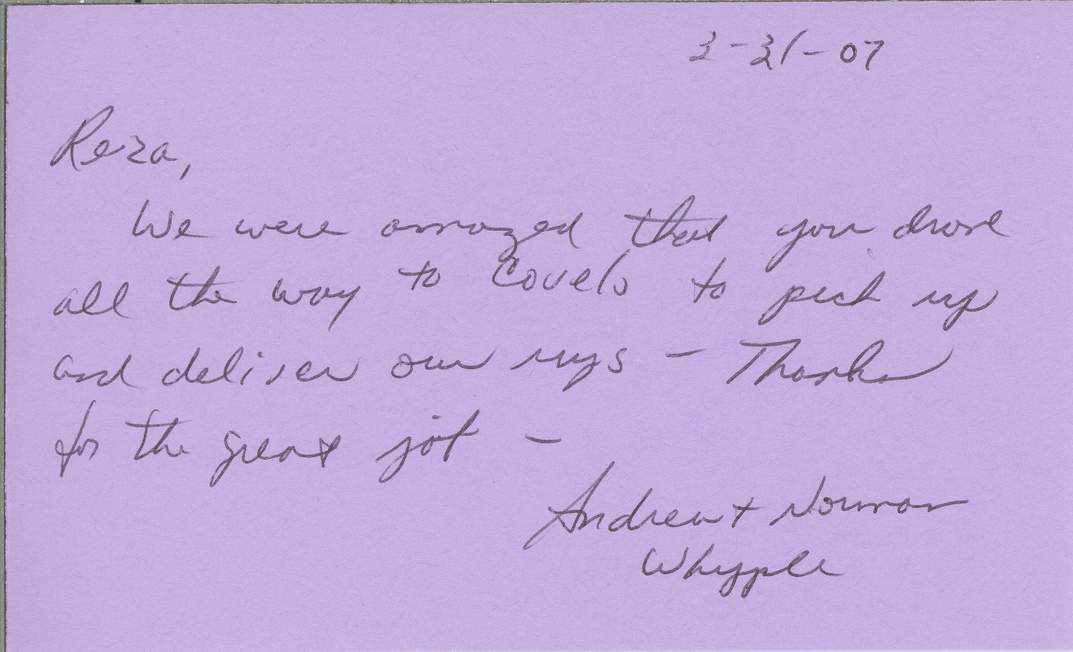 3-31-07
Reza,
We were amazed that you drove
all the way to Covelo to pick up
and deliver our rugs - Thanks
for the great job -
Andrea + Norman
Whypple